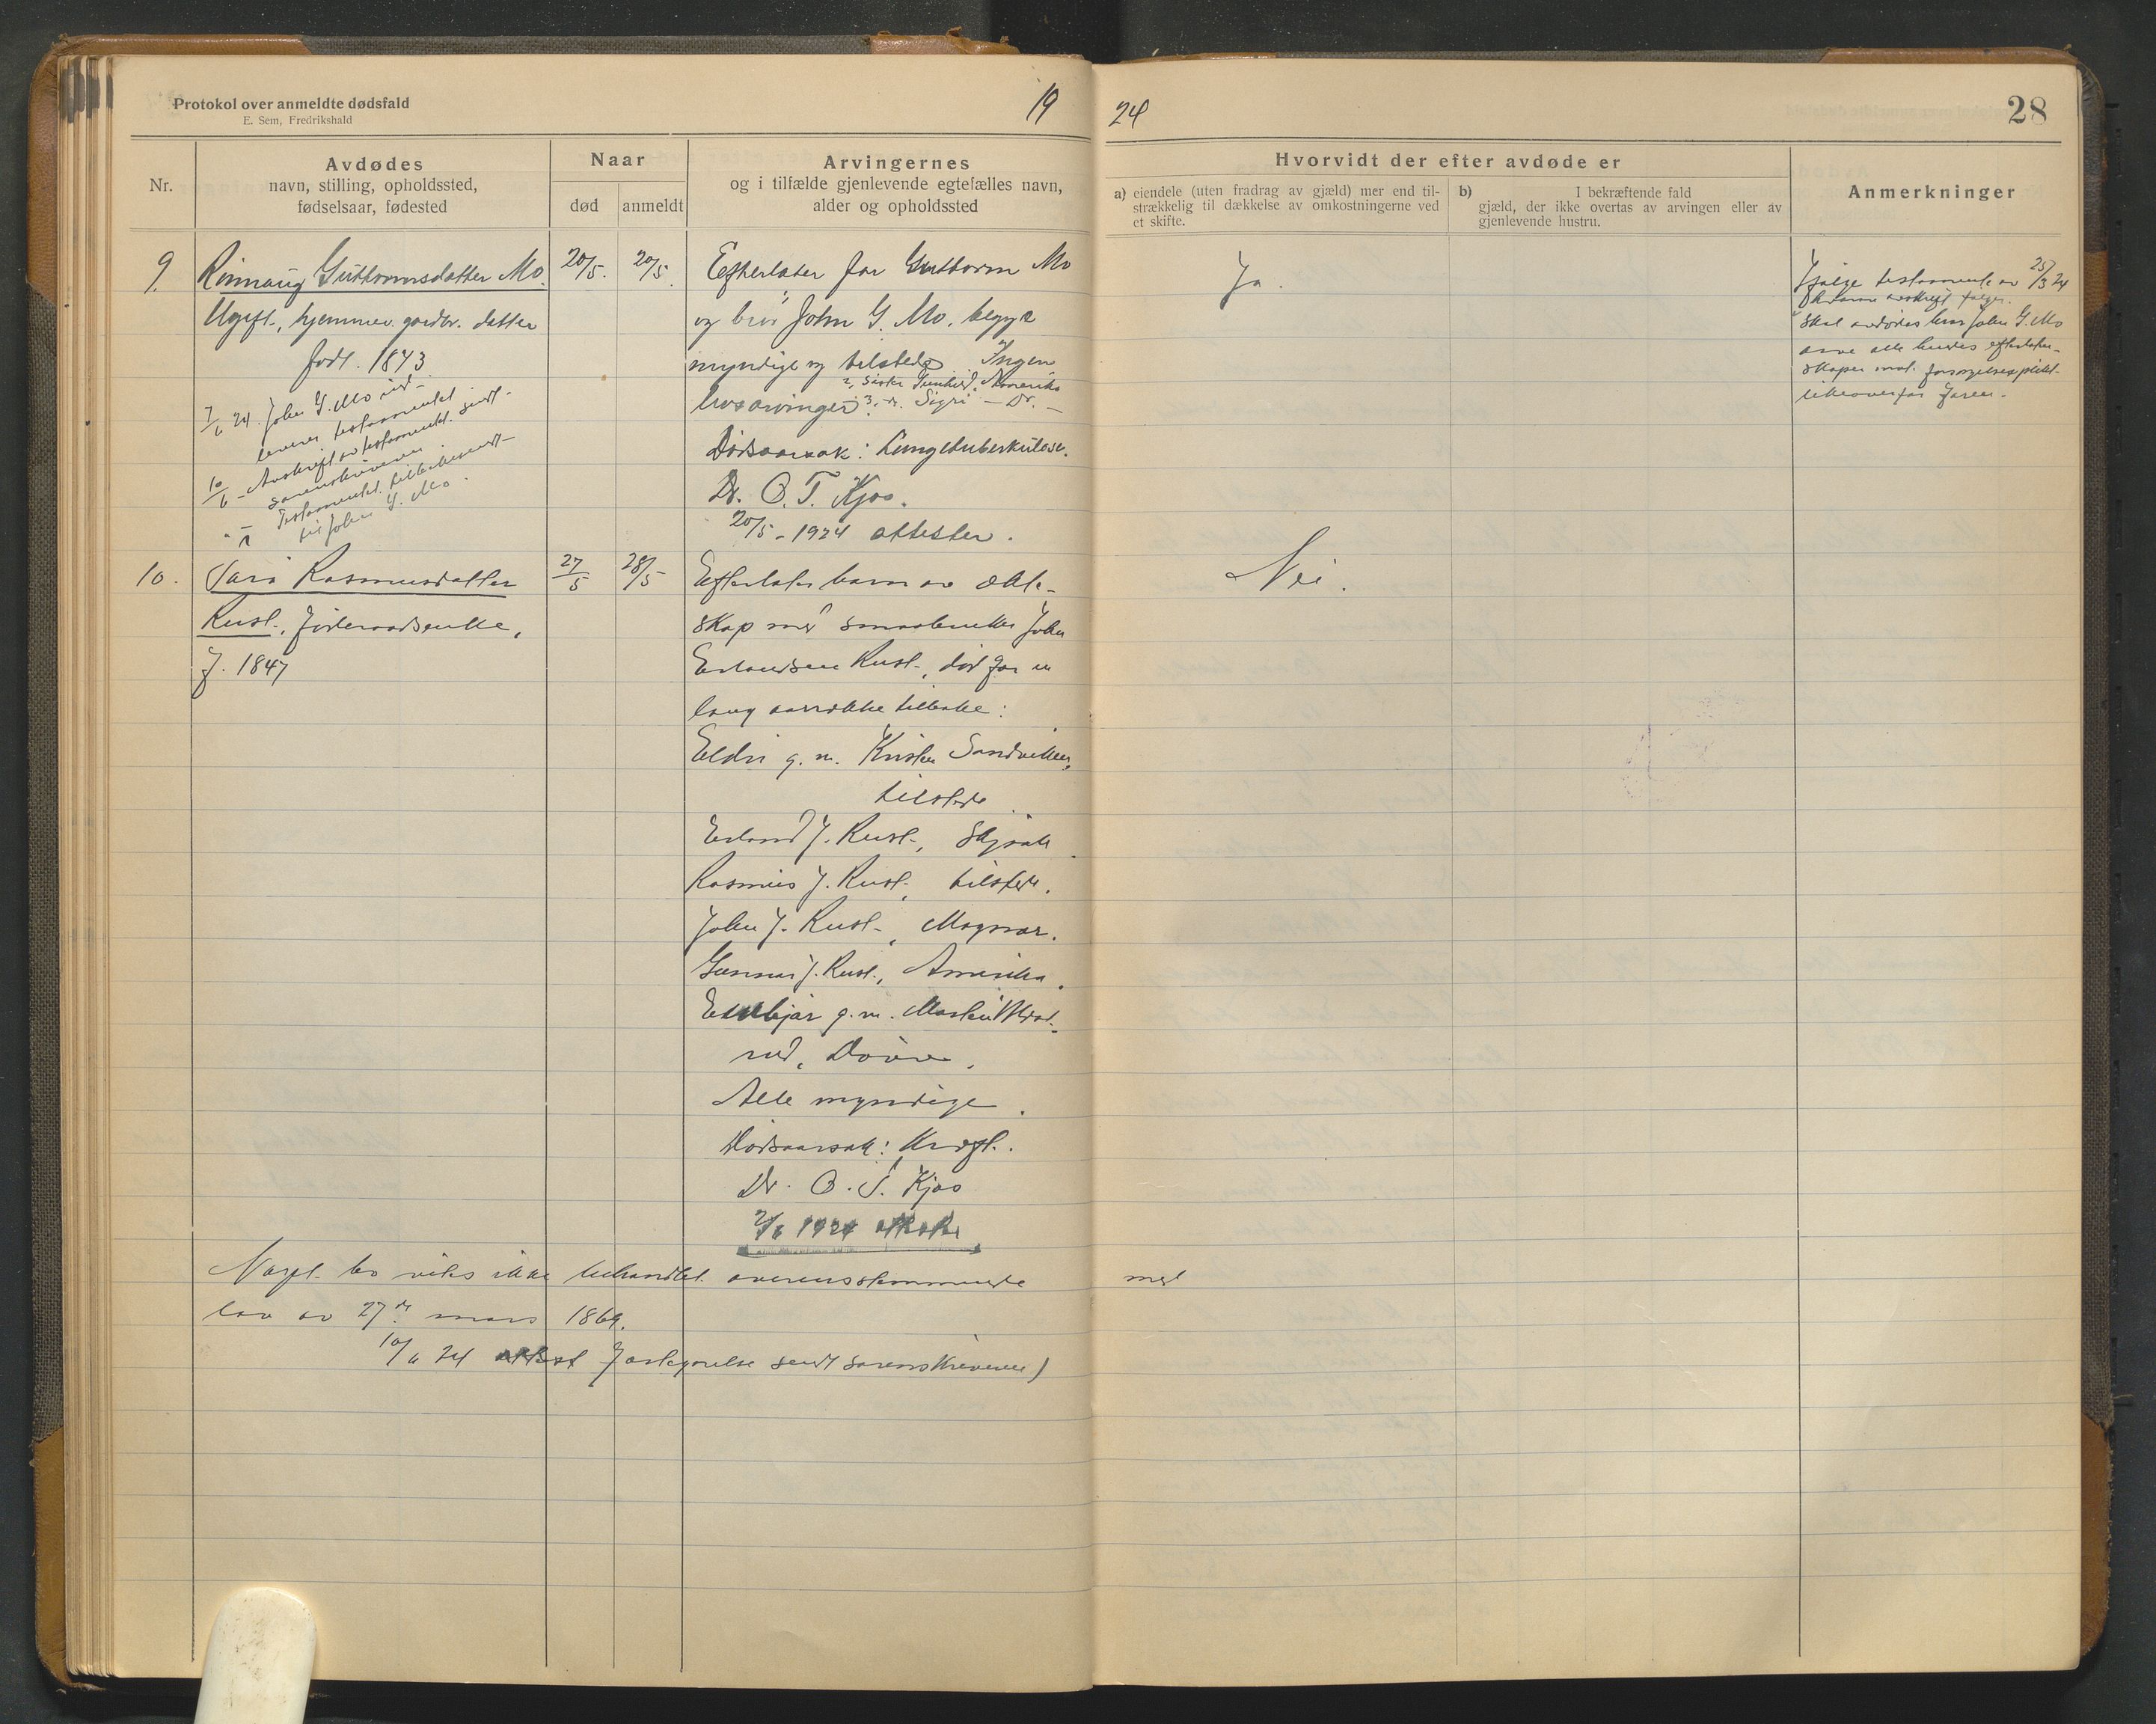 Protokol over anmeldte dødsfald
E. Sem, Fredrikshald
19
Nr.
Avdødes
navn, stilling, opholdssted,
fødselsaar, fødested
Naar
død
anmeldt
Arvingernes
og i tilfælde gjenlevende egtefælles navn,
alder og opholdssted
9.
Rönnaug Guttormsdatter Mo.
Ugift, hjemmev. gaardbr. datter
født. 1873
7/6 24. John G. Mo ind-
leverer testamentet
10/6 - Avskrift av testamentet sendt
sorenskriveren
Testamentet tilbakesendt
til John G. Mo.
20/5.
20/5.
Efterlater far Guttorm Mo
og bror John G. Mo, begge
myndige og tilstede. Ingen
2, søster Gunhild, Amerika
livsarvinger. 3, dr. Sigri - Do. -
Dødsaarsak: Lungetuberkulose.
Dr. O. T. Kjos.
20/5 - 1924 attester.
10.
Mari Rasmusdatter
Rust, føderaadsenke,
f. 1847
27/5
28/5
Efterlater barn av ekte-
skap med smaabruker John
Erlandsen Rust, død for en
lang aarrække tilbake:
Eldri g. m. Kristen Sandviken,
tilstede
Erland J. Rust, Skjaak
Rasmus J. Rust, tilstede.
John J. Rust,
Gunnar J. Rust, Amerika.
g. m. Morten
rud, Dovre.
Alle myndige.
Dødsaarsak: Kræft.
Dr. O. T. Kjos
2/6 1924 attester
bo vites ikke behandlet overensstemmende med
lov av 27de mars 1869.
10/6 24 attest sendt sorenskriveren)
24
28
Hvorvidt der efter avdøde er
a) eiendele (uten fradrag av gjæld) mer end til-
strækkelig til dækkelse av omkostningerne ved
et skifte.
b) I bekræftende fald
gjæld, der ikke overtas av arvingen eller av
gjenlevende hustru.
Anmerkninger
Ja.
Ifølge testamente av 25/3 24
hvorav avskrift følger.
skal avdødes bror John G. Mo
arve alle hendes efterladen-
skaper mot forsørgelsesplikt
likeoverfor faren.
Nei.